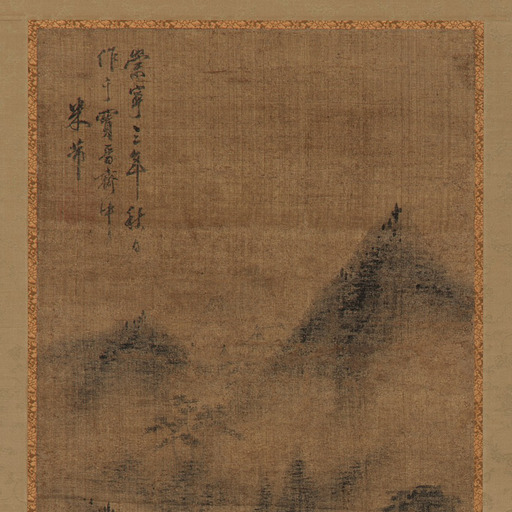 崇寧三年秋日
作于寶晉齋中
米芾